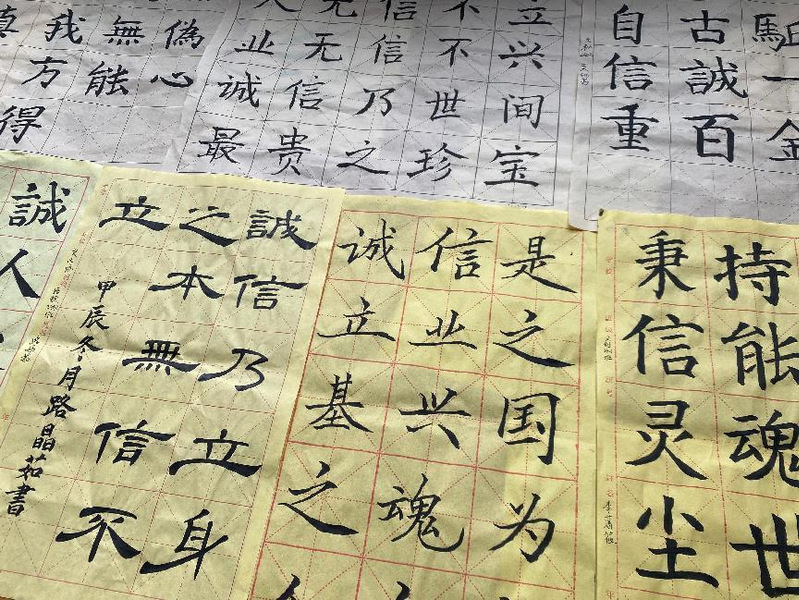 偽心
無能
我方得
真
人无信不立
业无信不兴
诚信乃世间
最贵之珍宝
一金
古誠百
自信重
誠人
誠信乃立身
之本無信不
立
甲辰冬月路晶茹書
诚信是
立业之
基兴国
之魂为
秉持
信能
灵魂
尘世